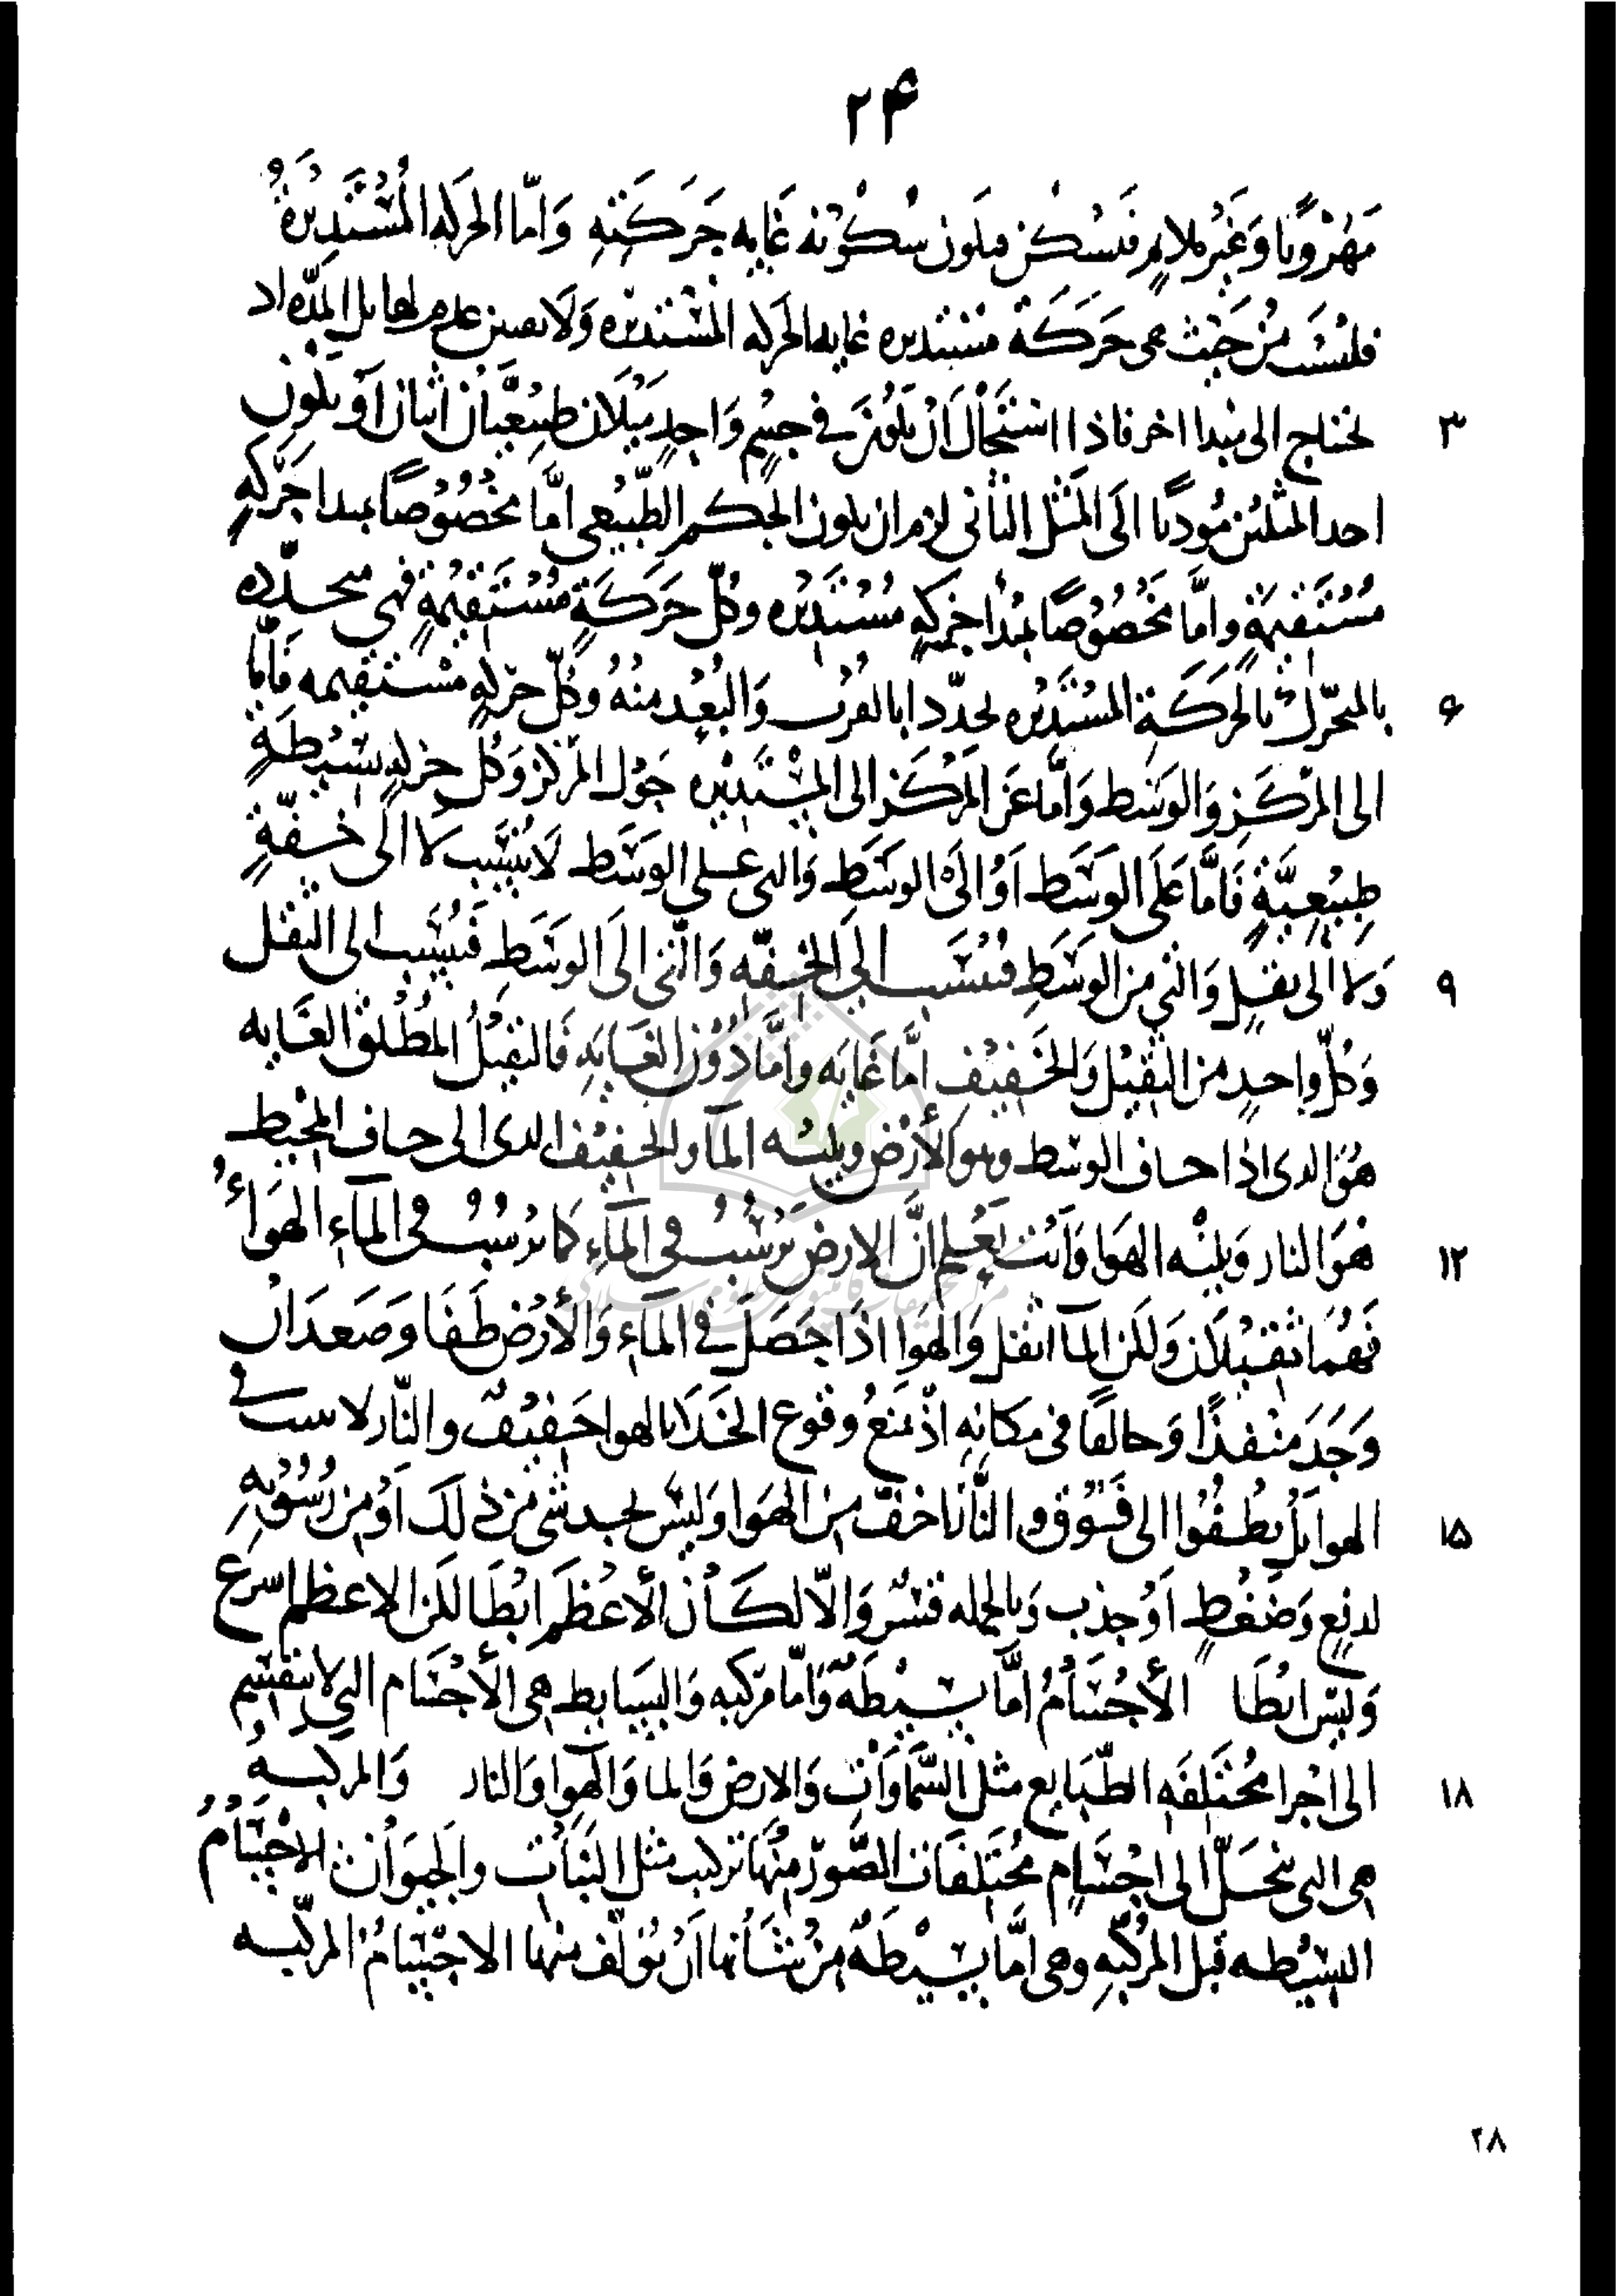 ۲۴
مَهْرُوبًا وَغَيْر ملايم فَيَسْكُن فيكون سُكُوْنه غَايه حَرَكَتِهِ وَامّا الحركه المُسْتَدِيرَةُ
فليْسَت مِنْ حَيْث هى حَرَكَة مُسْتديره غايه الحركه المُسْتَديْره وَلَا عدم لها بل المدّه اذ
تحتاج الى مبدا اخر فاذا اسْتَحَالَ اَنْ يَكُوْنَ فى جِسْمٍ وَاحِدٍ مَيْلَان طبِيْعيَّان اثنان اَوْ يكُون
احد المثليْن مُوديًا الَى المَثَل الثانى لزم ان يكون الجسم الطَّبيْعى امَّا مَخْصُوْصًا بمبدا حَرَكَةٍ
مُسْتَقِيْمَةٍ وامَّا مَخْصُوْصًا بمبْدأ حركةٍ مُسْتَدِيْره وكُلّ حَرَكَةٍ مُسْتَقِيْمَةٍ فهى متحدّده
بالمتحَرّك بالحَركَةِ المُسْتَدِيْره تحدّدا بالقرْب وَالبُعْد مِنْهُ وكُلّ حركةٍ مُسْتَقِيمه فَامّا
الى المَرْكَزِ وَالوَسَط وَامَّا عَن المَرْكَز الى المُسْتَدِيْره حَوْل المَرْكز وَكُل حركةٍ بَسِيْطَةٍ
طبِيْعِيَّةٍ فَامَّا عَلَى الوَسَط اَوْ الَى الوَسَط وَالتى عَلى الوَسَط لَا تُنْسَب لا الَى خِفّةٍ
وَلا الى ثقلٍ وَالتي من الوَسَطِ فتنْسَب الى الخِفّه وَالّتى الَى الوَسَطِ فَتُنْسَب الى الثقل
وَكُلّ واحدٍ من الثقِيْل وَالخَفِيْف امَّا غَايَه وامَّا دُوْن الغَايَةِ فَالثقِيْلُ المُطْلَق الغَايه
هُوَ الدى اذا حاف الوَسَط وهو الأرْض ويليْه المآ والخفِيْف الدى الى حاف المُحِيْط
فهوَ النار وَيليْه الهوَا وَاَنْت تَعْلم انَّ الارض تَرْسُبُ فى المآءِ كما يرْسُبُ فى المآءِ الهَوَآءُ
فَهُمَا ثقِيْلَان وَلكن المآ اثقل وَالهَوا اذَا حَصَلَ فى المآءِ وَالأرْض طَفَا وَصَعَدَ اِنْ
وَجَدَ مَنْفذًا وَحالفًا فى مكانِهِ اذْ يَمنَعُ وقوع الخَلَا بالهوا خَفِيْفٌ والنّار لا ترسب فى
الهوا بَلْ يطْفُوا الى فَوْق والنّار اخفّ من الهَوَا وَليْسَ تجد شى مِن ذلِكَ اَوْ مِن رُسُوْبِهِ
لدفعٍ وَضَغْطٍ اَوْ جذب وَبالجمله قسْر وَالّا لكَان الأعْظَم ابْطَا لكن الاعظم اسرَع
وَلَيْسَ ابْطَا الأجْسَامُ امَّا بَسِيْطَةٌ وَامّا مركبه وَالبسايط هى الأجْسَام التي لا تنقَسِم
الى اجْزا مُخْتَلفَه الطَّبَايع مثل السَّمَاوَات وَالارض وَالما وَالهوا وَالنار وَالمركبه
هى التى تنحَلّ الى اجْسَامٍ مُخْتَلفَات الصُّوَر مِنْهَا تركب مثل النَبَات وَالحيوَان الاجْسَامُ
البسيْطه قبل المُركّبه وهى امَّا بَسِيْطَةٌ مِنْ شَأنها اَنْ يؤلَف مِنْها الاجْسَامُ المركّبه
۳
۶
۹
۱۲
۱۵
۱۸
۲۸